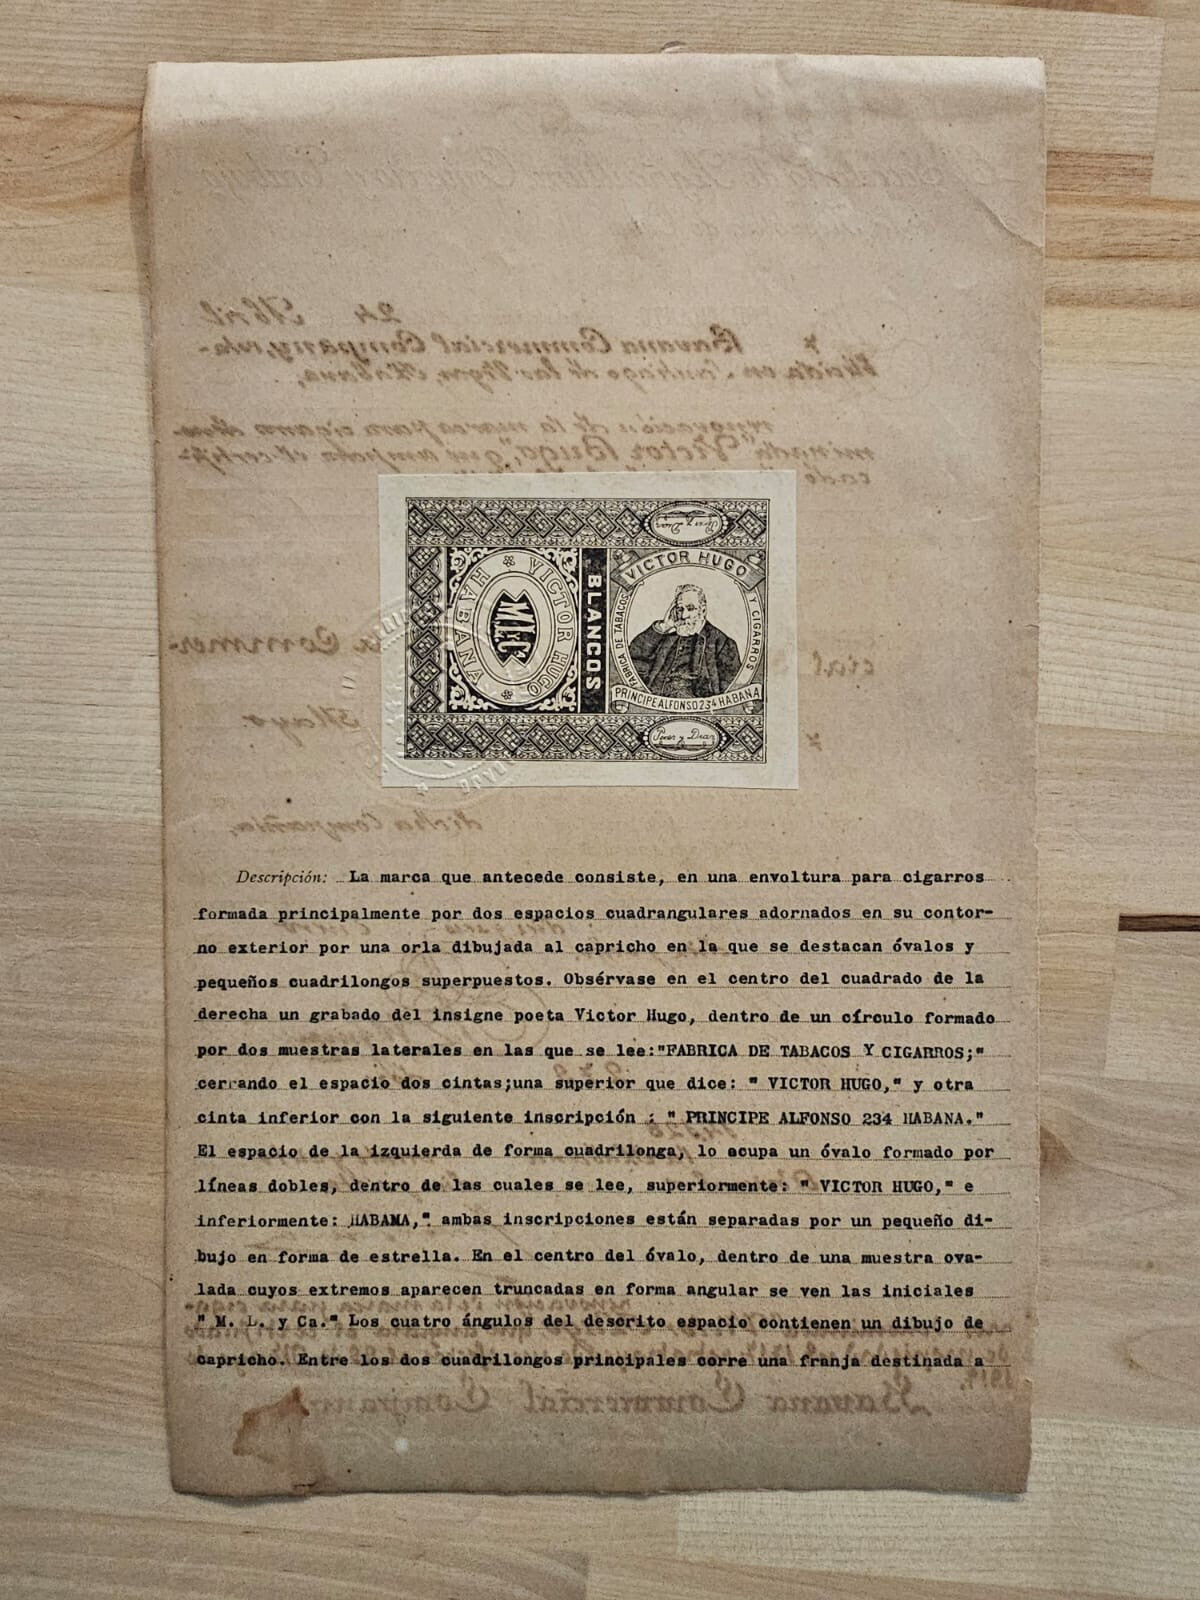 24 Abril
Havana Commercial Company, esta-
blecida en Santiago de las Vegas, Habana,
renovación de la marca para cigarros deno-
minada "Victor Hugo," que ampara el certifi-
cado
Perez y Diaz
VICTOR HUGO
FABRICA DE TABACOS
Y CIGARROS
PRINCIPE ALFONSO 234 HABANA
Perez y Diaz
BLANCOS
VICTOR HUGO
HABANA
M.L.yCª
Commer-
cial
Mayo
dicha Compañia,
Descripción: La marca que antecede consiste, en una envoltura para cigarros
formada principalmente por dos espacios cuadrangulares adornados en su contor-
no exterior por una orla dibujada al capricho en la que se destacan óvalos y
pequeños cuadrilongos superpuestos. Obsérvase en el centro del cuadrado de la
derecha un grabado del insigne poeta Victor Hugo, dentro de un círculo formado
por dos muestras laterales en las que se lee:"FABRICA DE TABACOS Y CIGARROS;"
cerrando el espacio dos cintas;una superior que dice: " VICTOR HUGO," y otra
cinta inferior con la siguiente inscripción : " PRINCIPE ALFONSO 234 HABANA."
El espacio de la izquierda de forma cuadrilonga, lo ocupa un óvalo formado por
líneas dobles, dentro de las cuales se lee, superiormente: " VICTOR HUGO," e
inferiormente: HABAMA," ambas inscripciones están separadas por un pequeño di-
bujo en forma de estrella. En el centro del óvalo, dentro de una muestra ova-
lada cuyos extremos aparecen truncadas en forma angular se ven las iniciales
" M. L. y Ca." Los cuatro ángulos del descrito espacio contienen un dibujo de
capricho. Entre los dos cuadrilongos principales corre una franja destinada a
Havana Commercial Company